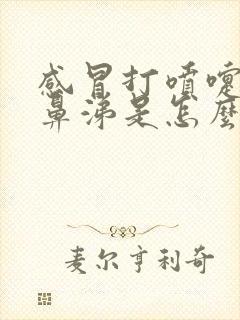 感冒打喷嚏
鼻涕是怎麼
麦尔亨利奇